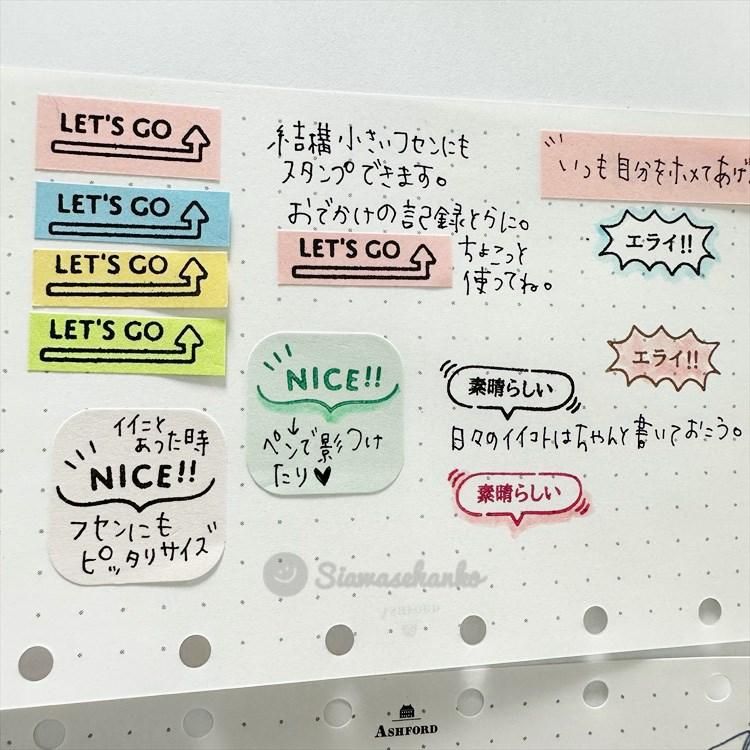 LET'S GO
LET'S GO
LET'S GO
LET'S GO
イイこと
あった時
NICE!!
フセンにも
ピッタリサイズ
結構小さいフセンにも
スタンプできます。
おでかけの記録とらに。
LET'S GO
ちょこっと
使ってね。
NICE!!
ペンで影つけ
たり♥
いつも自分をホメてあげ
エライ!!
エライ!!
素晴らしい
日々のイイコトはちゃんと書いておこう。
素晴らしい
Siawasehanko
ASHFORD